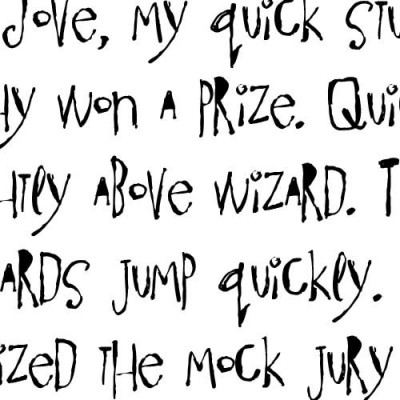 Jove, my quick stu
hy won a prize. Qui
htly above wizard. T
ards jump quickly.
ized the mock jury